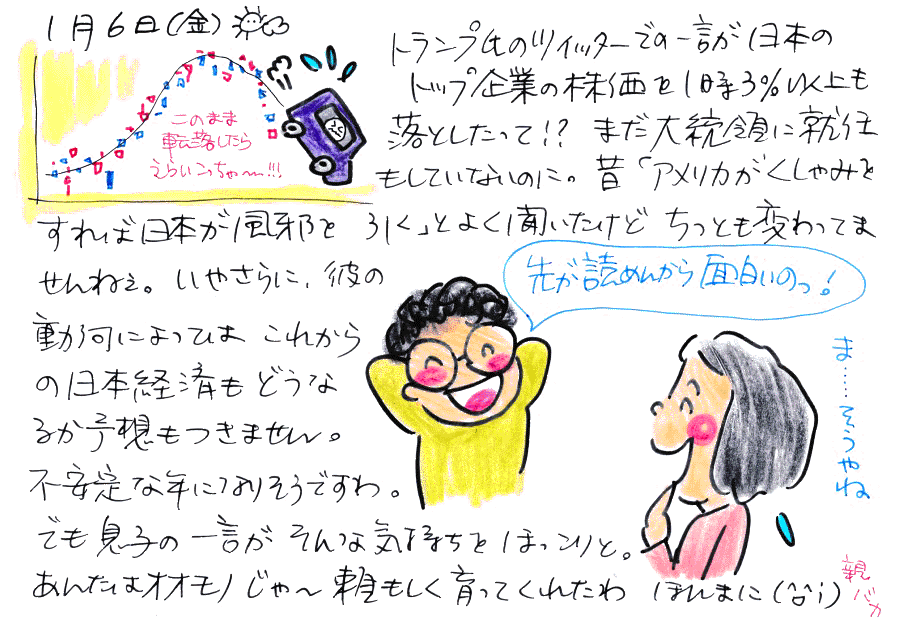 1月6日(金)
このまま
転落したら
えらいこっちゃ〜!!!
トランプ氏のツイッターでの一言が日本の
トップ企業の株価を1時3%以上も
落としたって!? まだ大統領に就任
もしていないのに。昔「アメリカがくしゃみを
すれば日本が風邪を引く」とよく聞いたけど ちっとも変わってま
せんねぇ。いやさらに、彼の
動向によっては これから
の日本経済も どうな
るか予想もつきません。
不安定な年になりそうですわ。
でも息子の一言が そんな気持ちを ほっこりと。
あんたはオオモノじゃ〜 頼もしく育ってくれたわ ほんまに(^^;)
先が読めんから面白いのっ!
ま……そうやね
親バカ